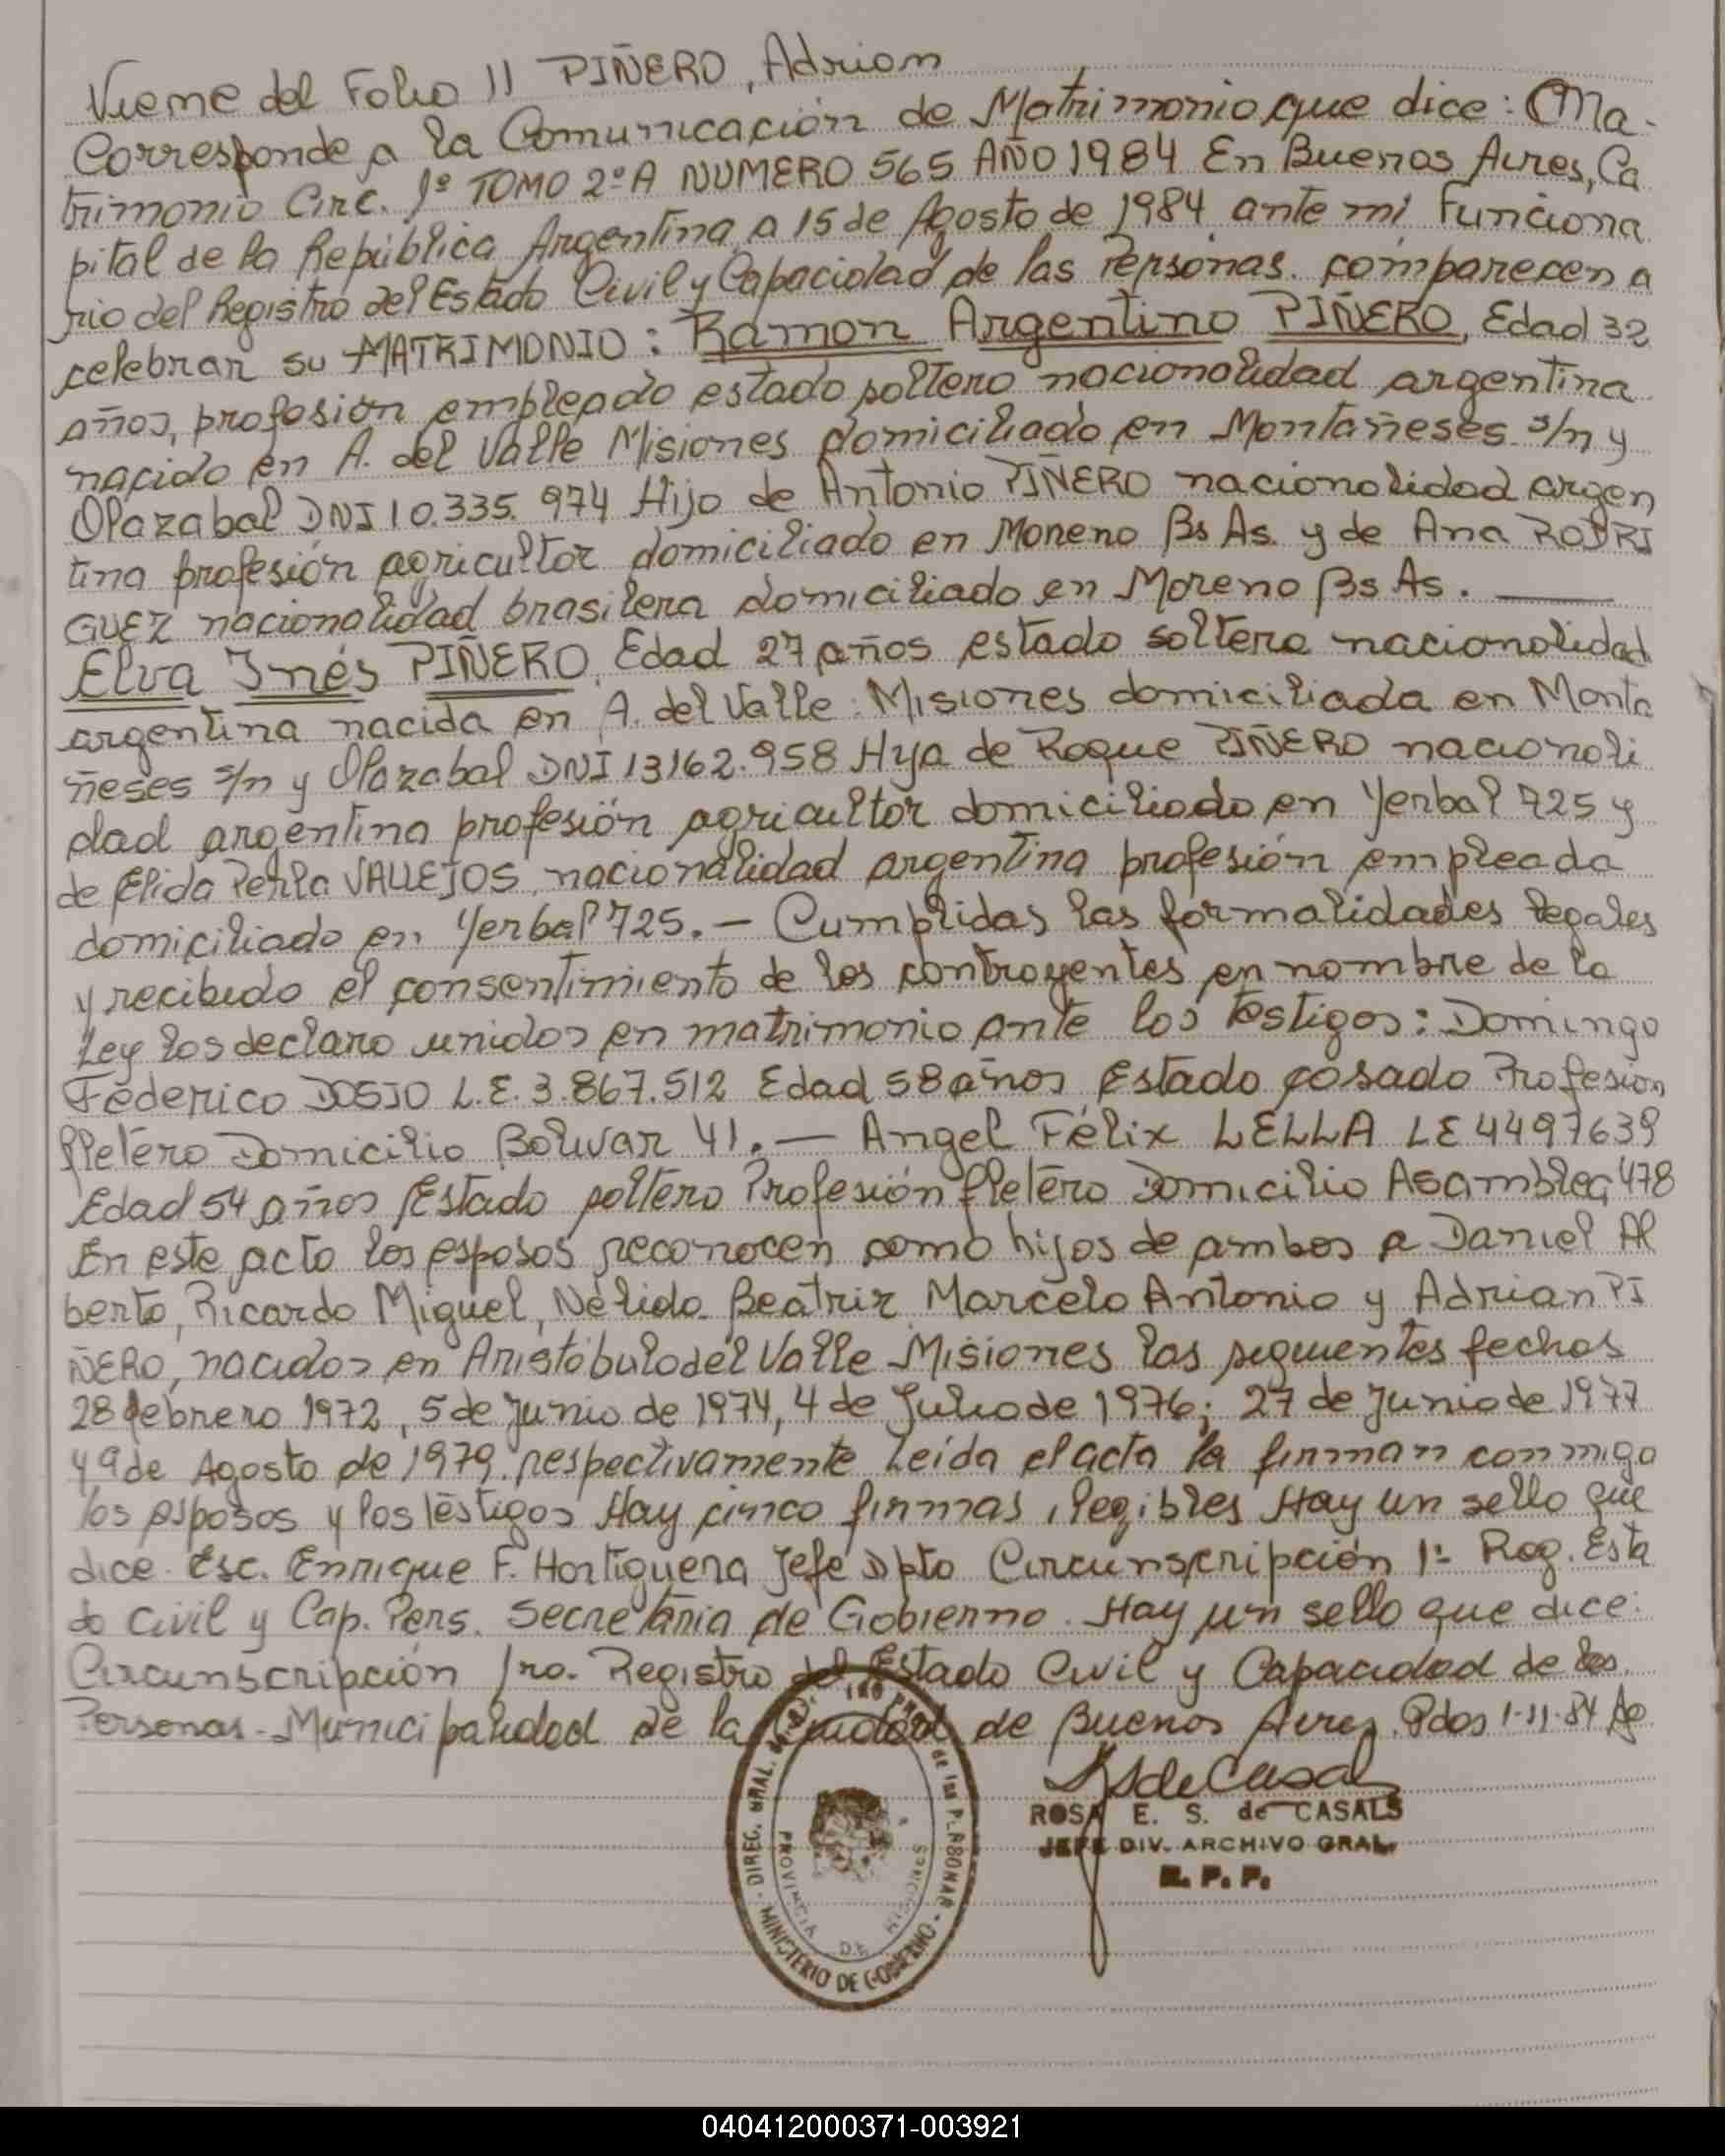 Viene del Folio 11 PIÑERO, Adrian
Corresponde a la Comunicación de Matrimonio que dice: (Ma-
trimonio Circ. 1º TOMO 2º A NUMERO 565 AÑO 1984 En Buenos Aires, Ca
pital de la República Argentina a 15 de Agosto de 1984 ante mi Funciona
rio del Registro del Estado Civil y Capacidad de las Personas. comparecen a
celebrar su MATRIMONIO: Ramon Argentino PIÑERO, Edad 32
años, profesión empleado estado soltero nacionalidad argentina
nacido en A. del Valle Misiones domiciliado en Montañeses s/n y
Olazabal DNI 10.335.974 Hijo de Antonio PIÑERO nacionalidad argen
tina profesión agricultor domiciliado en Moreno Bs As. y de Ana RODRI
GUEZ nacionalidad brasilera domiciliado en Moreno Bs As.
Elva Inés PIÑERO, Edad 27 años estado soltera nacionalidad
argentina nacida en A. del Valle. Misiones domiciliada en Monta
ñeses s/n y Olazabal DNI 13162.958 Hija de Roque PIÑERO nacionali
dad argentina profesión agricultor domiciliado en Yerbal 725 y
de Elida Perla VALLEJOS, nacionalidad argentina profesión empleada
domiciliado en Yerbal 725.- Cumplidas las formalidades legales
y recibido el consentimiento de los contrayentes en nombre de la
Ley los declaro unidos en matrimonio ante los testigos: Domingo
Federico DOSIO L.E. 3.867.512 Edad 58 años Estado casado Profesion
fletero Domicilio Bolivar 41.- Angel Félix LELLA LE 4497639
Edad 54 años Estado soltero Profesión fletero Domicilio Asamblea 478
En este acto los esposos reconocen como hijos de ambos a Daniel Al
berto, Ricardo Miguel, Nélida Beatriz Marcelo Antonio y Adrian PI
ÑERO, nacidos en Aristobulo del Valle Misiones las siguientes fechas
28 febrero 1972, 5 de Junio de 1974, 4 de Julio de 1976; 27 de Junio de 1977
y 9 de Agosto de 1979. respectivamente Leída el acta la firman conmigo
los esposos y los testigos Hay cinco firmas ilegibles Hay un sello que
dice. Esc. Enrique F. Hortiguera Jefe Dpto Circunscripción 1º Reg. Esta
do Civil y Cap. Pers. Secretaria de Gobierno. Hay un sello que dice:
Circunscripción 1ro. Registro del Estado Civil y Capacidad de las
Personas - Municipalidad de la Ciudad de Buenos Aires. Pdas 1-11-84
ROSA E. S. de CASALS
JEFE DIV. ARCHIVO GRAL.
R. P. P.
MINISTERIO DE GOBIERNO
PROVINCIA DE MISIONES
040412000371-003921